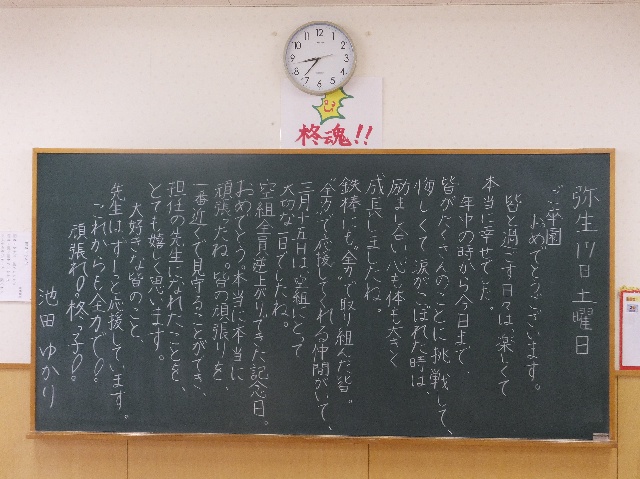 柊魂!!
弥生17日土曜日
ご卒園
おめでとうございます。
皆と過ごす日々は楽しくて
本当に幸せでした。
年中の時から今日まで、
皆がたくさんのことに挑戦して、
悔しくて涙がこぼれた時は、
励まし合い心も体も大きく
成長しましたね。
鉄棒にも全力で取り組んだ皆。
全力で応援してくれる仲間がいて、
三月十五日は、空組にとって
大切な一日でしたね。
空組全員逆上がりできた記念日。
おめでとう。本当に本当に
頑張ったね。皆の頑張りを、
一番近くで見守ることができ、
担任の先生になれたことを、
とても嬉しく思います。
大好きな皆のこと、
先生はずーっと応援しています。
これからも全力でいけ!
頑張れ!柊っ子!
池田ゆかり
12
1
2
3
4
5
6
7
8
9
10
11